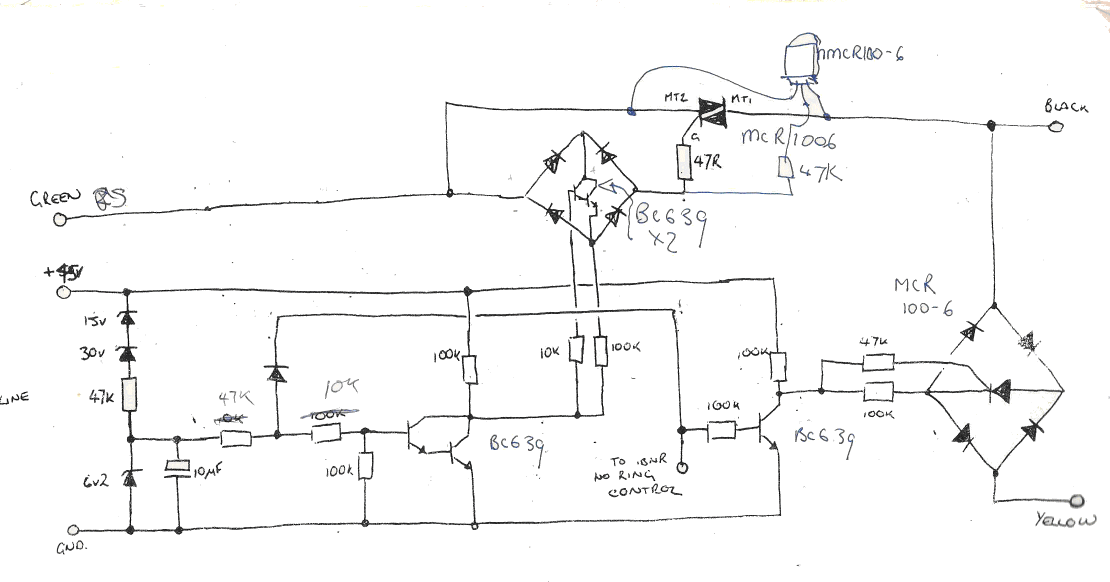 MCR100-6
MT2
MT1
BLACK
G
47R
MCR1006
47K
GREEN
BC639
X2
+45V
MCR
100-6
15V
30V
47K
LINE
47K
10K
100K
10K
100K
100K
47K
100K
100K
100K
BC639
BC639
6V2
10µF
100K
TO IBNR
NO RING
CONTROL
GND.
YELLOW